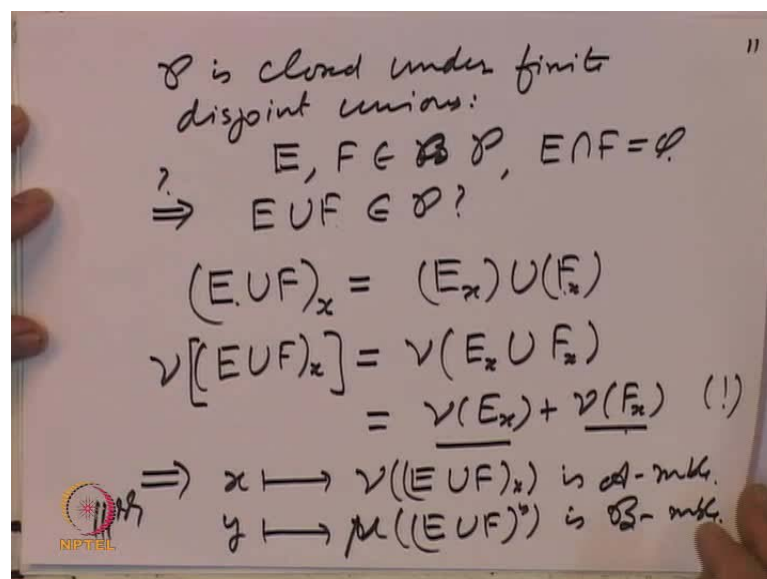 11
𝒫 is closed under finite
disjoint unions:
E, F ∈ 𝒫, E ∩ F = φ.
? ⇒ E ∪ F ∈ 𝒫?
(E ∪ F)ₓ = (Eₓ) ∪ (Fₓ)
ν[(E ∪ F)ₓ] = ν(Eₓ ∪ Fₓ)
= ν(Eₓ) + ν(Fₓ) (!)
⇒ x ⟼ ν((E ∪ F)ₓ) is 𝒜-mble.
y ⟼ μ((E ∪ F)ʸ) is ℬ-mble.
NPTEL